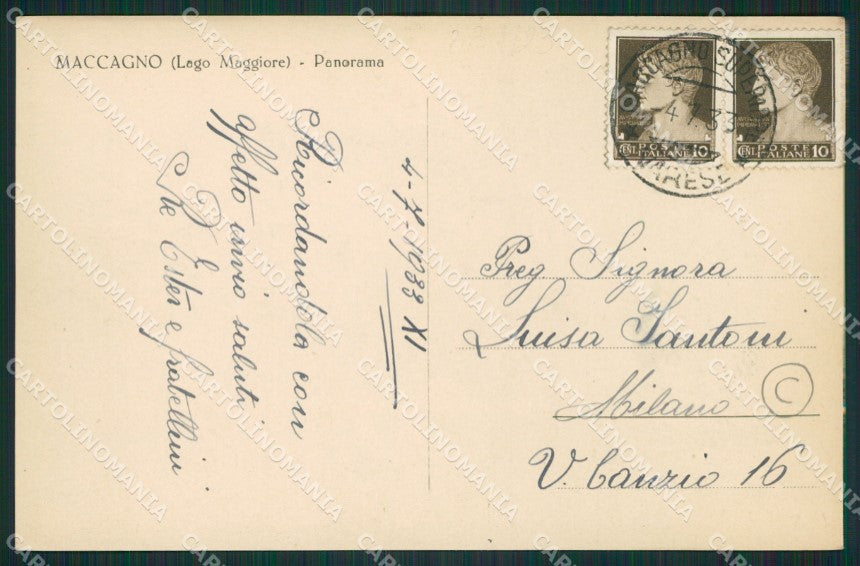 MACCAGNO (Lago Maggiore) - Panorama
4-7-1933 XI
Ricordandola con
affetto invio saluti
Ester e fratellini
Preg Signora
Luisa Santoni
Milano
C
V. Canzio 16
POSTE ITALIANE
CENT. 10
POSTE ITALIANE
CENT. 10
MACCAGNO SUPERIORE
4.7.33
VARESE
CARTOLINOMANIA